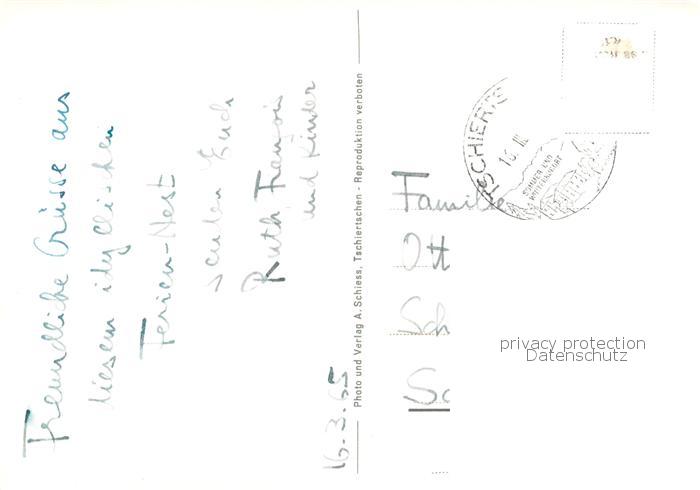 Freundliche Grüsse aus
diesem idyllischen
Ferien-Nest
senden Euch
Ruth, François
und Kinder
16.3.65
Photo und Verlag A. Schiess, Tschiertschen - Reproduktion verboten
TSCHIERTS
16. III
SOMMER UND
Familie
Ott
Sch
Sc
privacy protection
Datenschutz